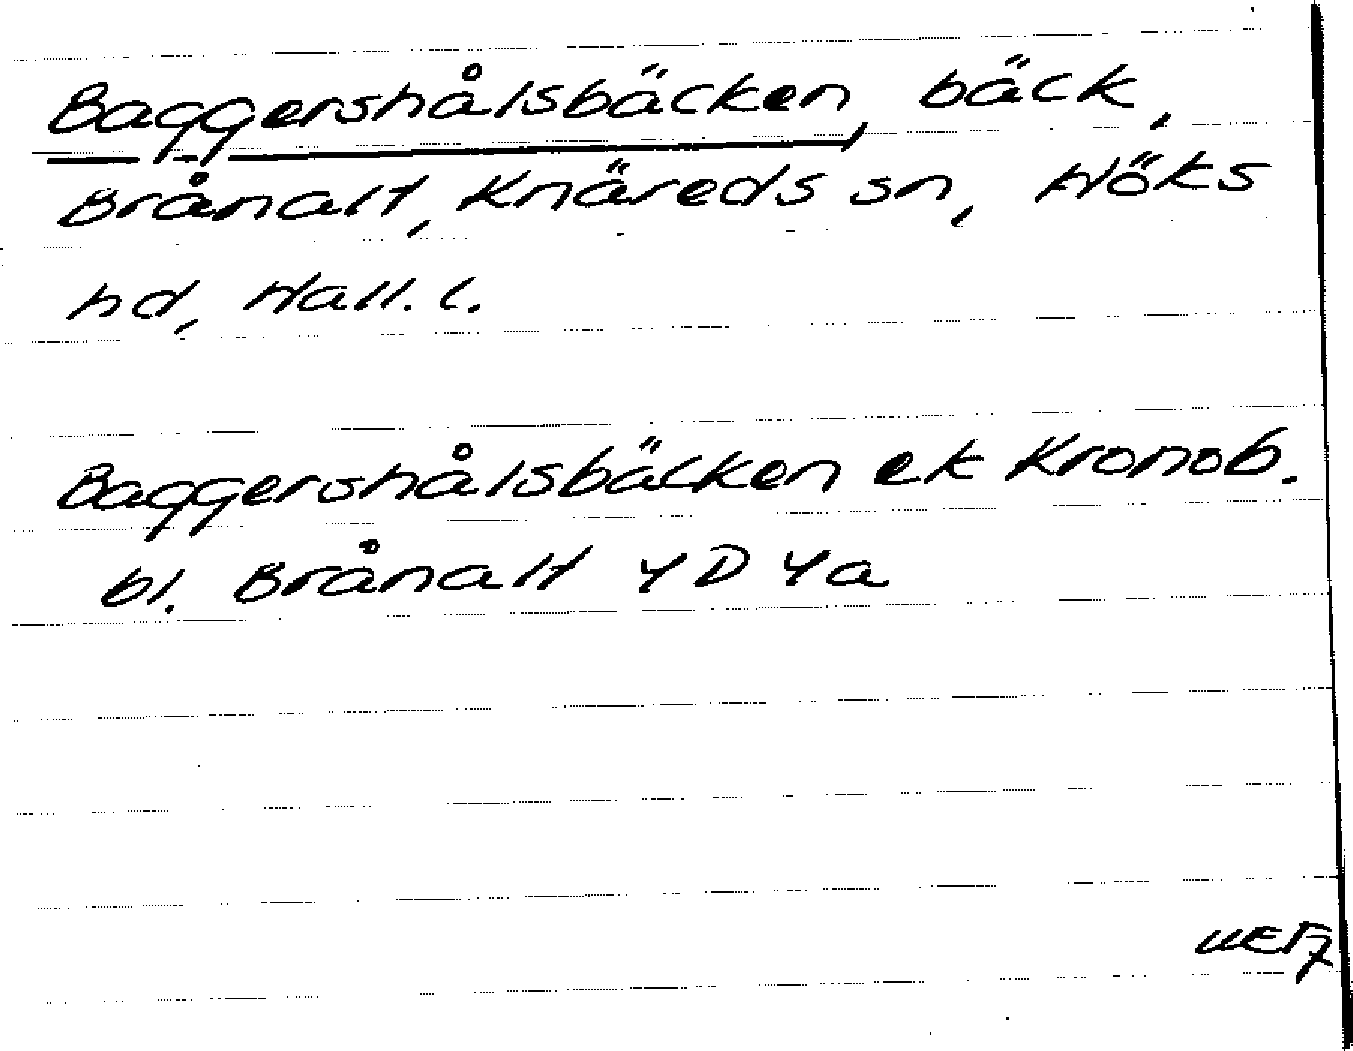 Baggershålsbäcken, bäck,
Brånalt, Knäreds sn, Höks
hd, Hall. l.
Baggershålsbäcken ek Kronob.
bl. Brånalt 4D4a